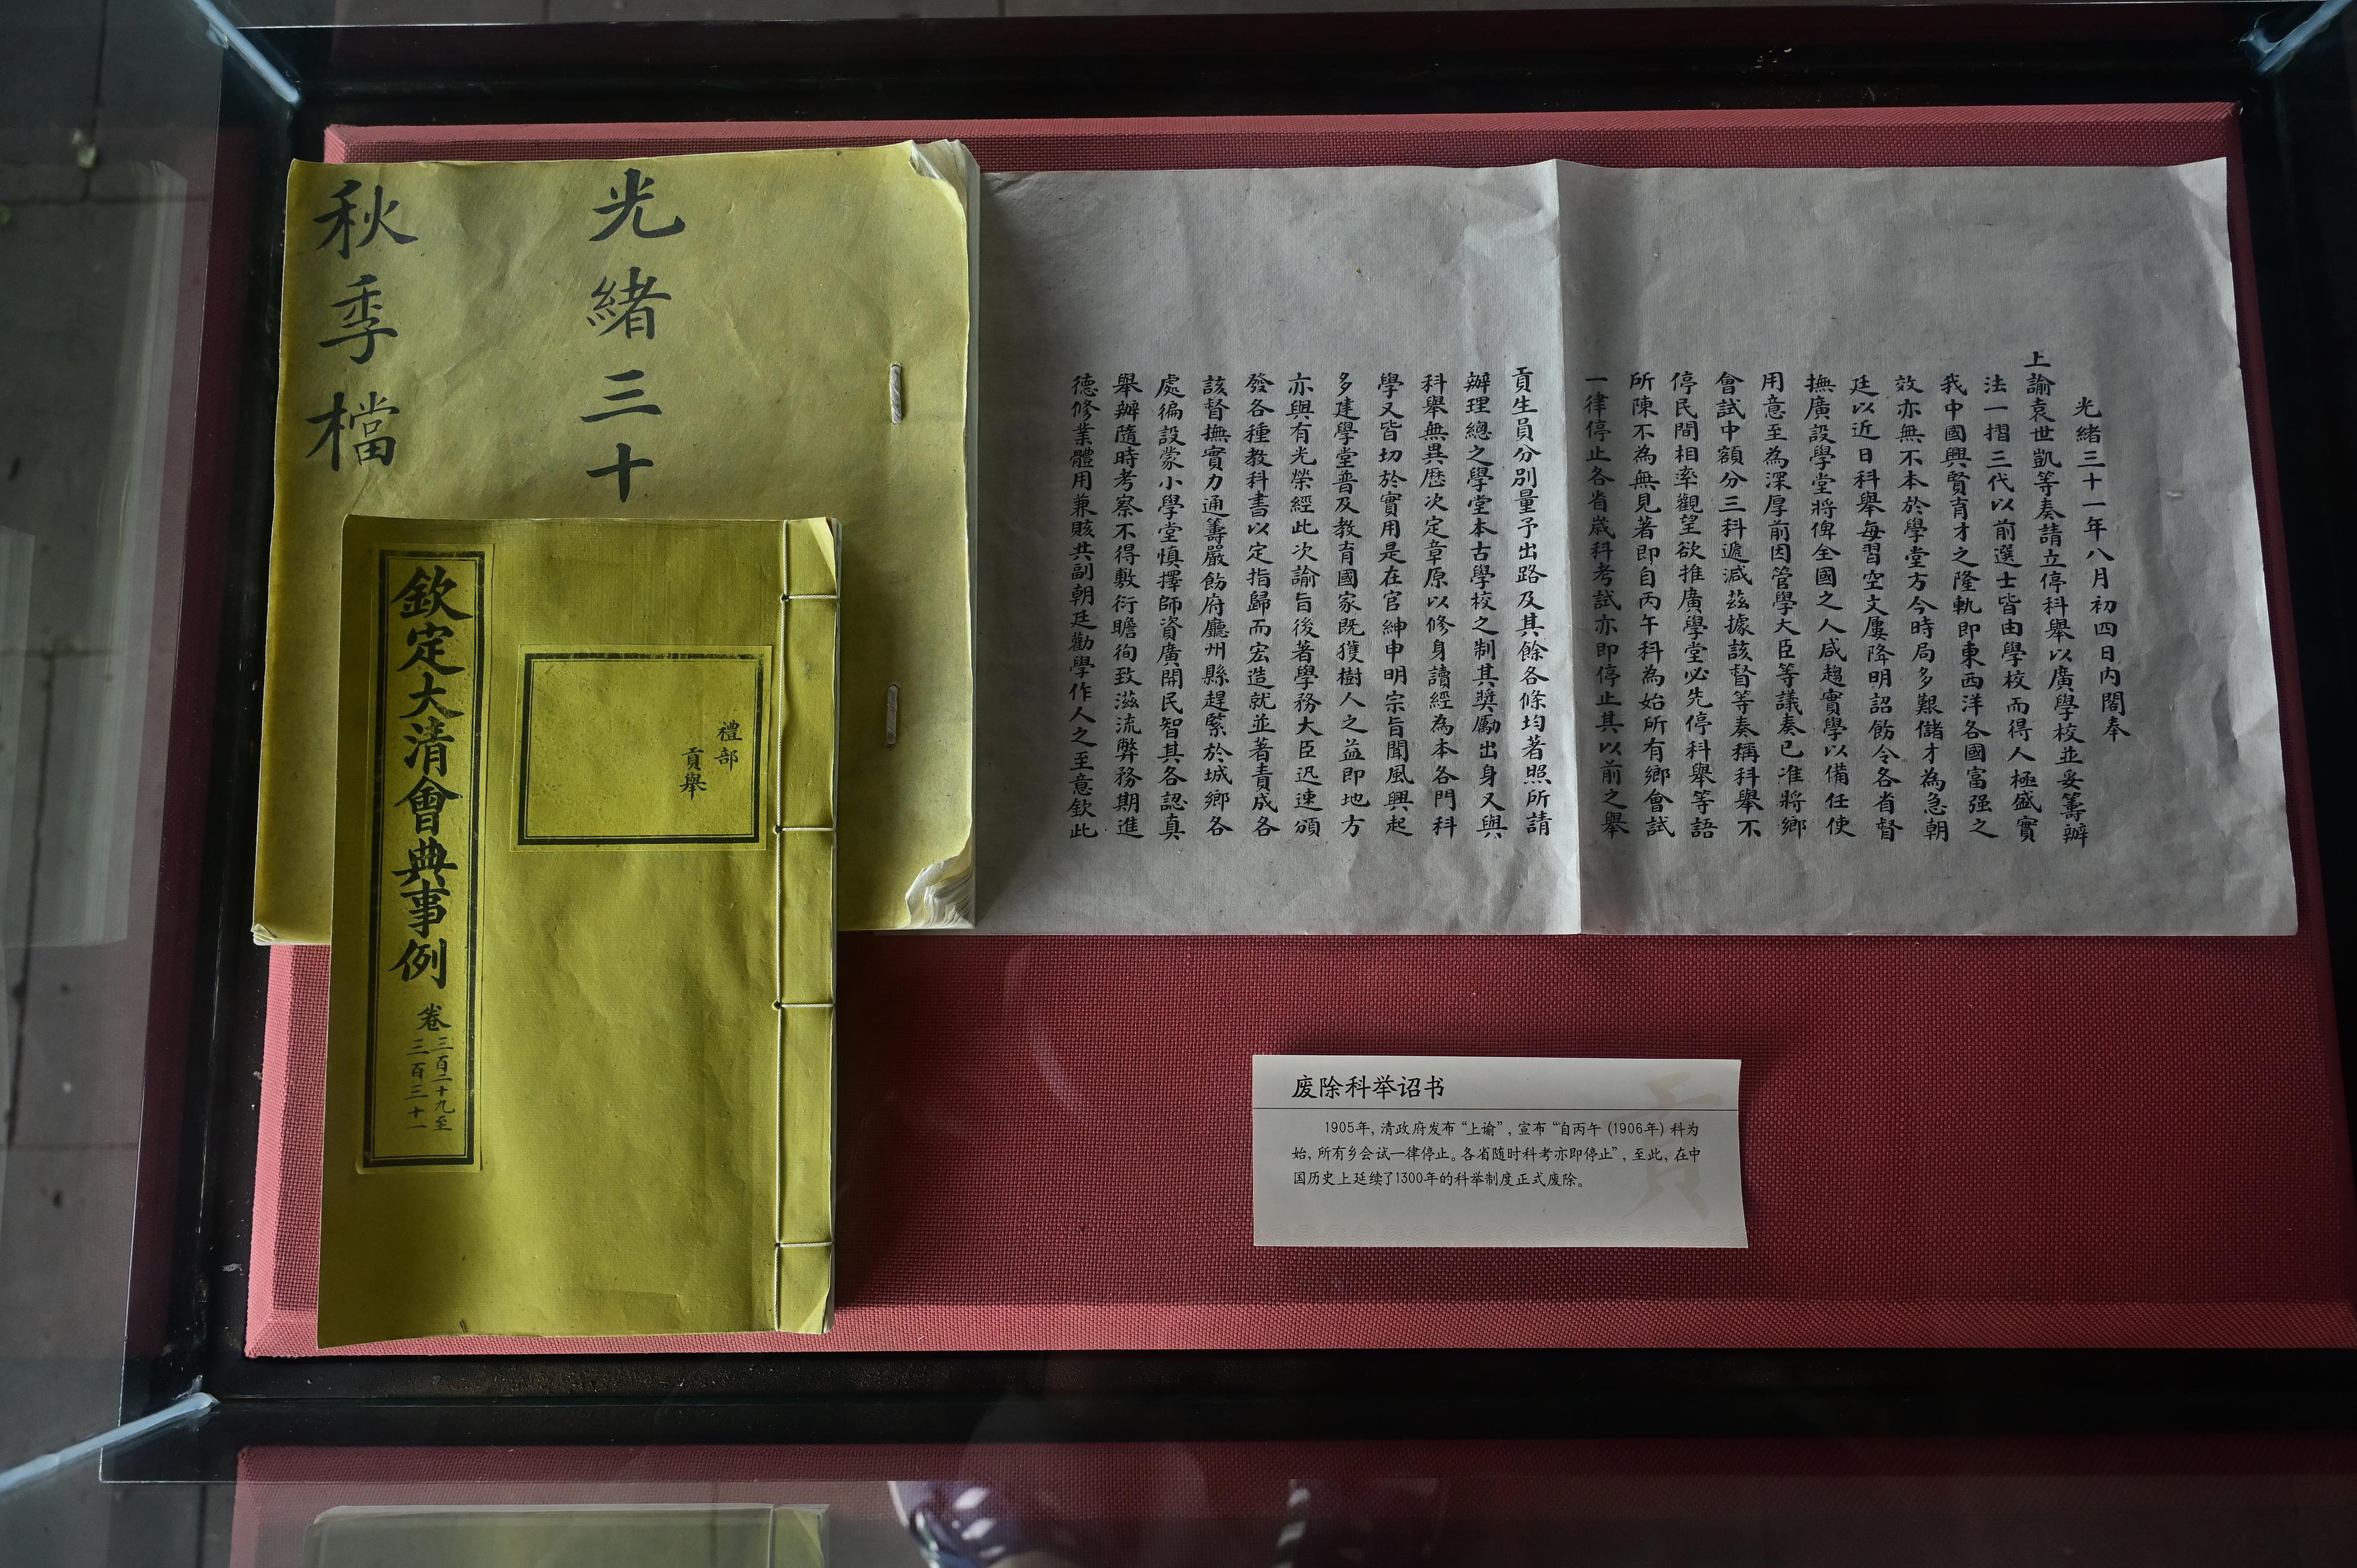 光緒三十
秋季檔
禮部
貢舉
欽定大清會典事例
卷
三百二十九至
三百三十一
光緒三十一年八月初四日內閣奉
上諭袁世凱等奏請立停科舉以廣學校並妥籌辦
法一摺三代以前選士皆由學校而得人極盛實
我中國興賢育才之隆軌即東西洋各國富强之
效亦無不本於學堂方今時局多艱儲才為急朝
廷以近日科舉每習空文屢降明詔飭令各省督
撫廣設學堂將俾全國之人咸趨實學以備任使
用意至為深厚前因管學大臣等議奏已准將鄉
會試中額分三科遞減茲據該督等奏稱科舉不
停民間相率觀望欲推廣學堂必先停科舉等語
所陳不為無見著即自丙午科為始所有鄉會試
一律停止各省歲科考試亦即停止其以前之舉
貢生員分別量予出路及其餘各條均著照所請
辦理總之學堂本古學校之制其獎勵出身又與
科舉無異歷次定章原以修身讀經為本各門科
學又皆切於實用是在官紳申明宗旨聞風興起
多建學堂普及教育國家既獲樹人之益即地方
亦與有光榮經此次諭旨後著學務大臣迅速頒
發各種教科書以定指歸而宏造就並著責成各
該督撫實力通籌嚴飭府廳州縣趕緊於城鄉各
處徧設蒙小學堂慎擇師資廣開民智其各認真
舉辦隨時考察不得敷衍瞻徇致滋流弊務期進
德修業體用兼賅共副朝廷勸學作人之至意欽此
废除科举诏书
1905年，清政府发布“上谕”，宣布“自丙午（1906年）科为
始，所有乡会试一律停止。各省随时科考亦即停止”，至此，在中
国历史上延续了1300年的科举制度正式废除。
貢